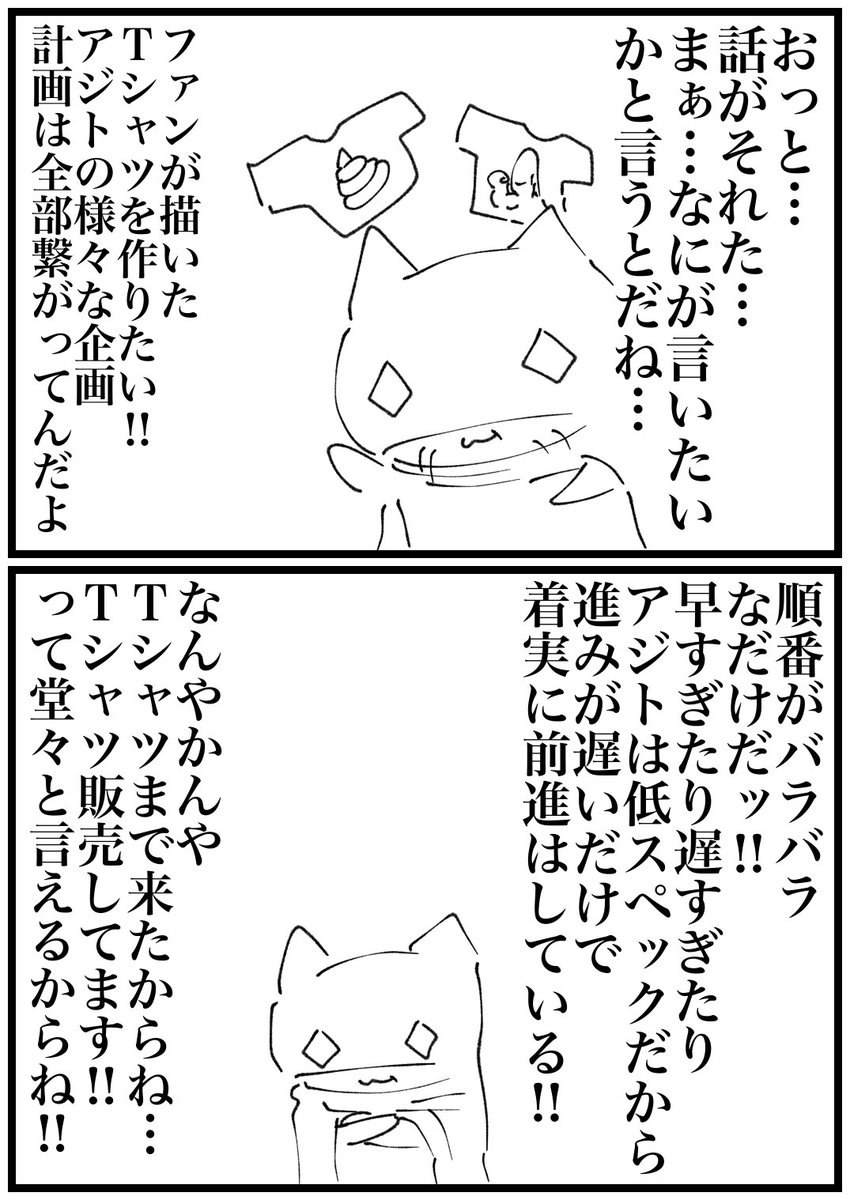 おっと…
話がそれた…
まぁ…なにが言いたい
かと言うとだね…
ファンが描いた
Tシャツを作りたい!!
アジトの様々な企画
計画は全部繋がってんだよ
順番がバラバラ
なだけだッ!!
早すぎたり遅すぎたり
アジトは低スペックだから
進みが遅いだけで
着実に前進はしている!!
なんやかんや
Tシャツまで来たからね…
Tシャツ販売してます!!
って堂々と言えるからね!!